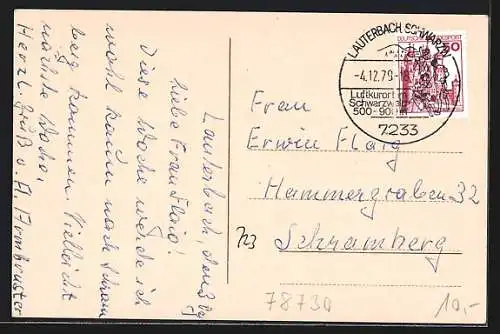 Lauterbach, den 3.12.79
Liebe Frau Flaig!
Diese Woche werde ich
wohl kaum nach Schram
berg kommen. Vielleicht
nächste Woche.
Herzl. Gruß v. A. Armbruster
LAUTERBACH, SCHWARZW
-4.12.79-
Luftkurort im
Schwarzwald
500-900
7233
DEUTSCHE BUNDESPOST
50
Frau
Erwin Flaig
Hammergraben 32
723
Schramberg
78730
10,-